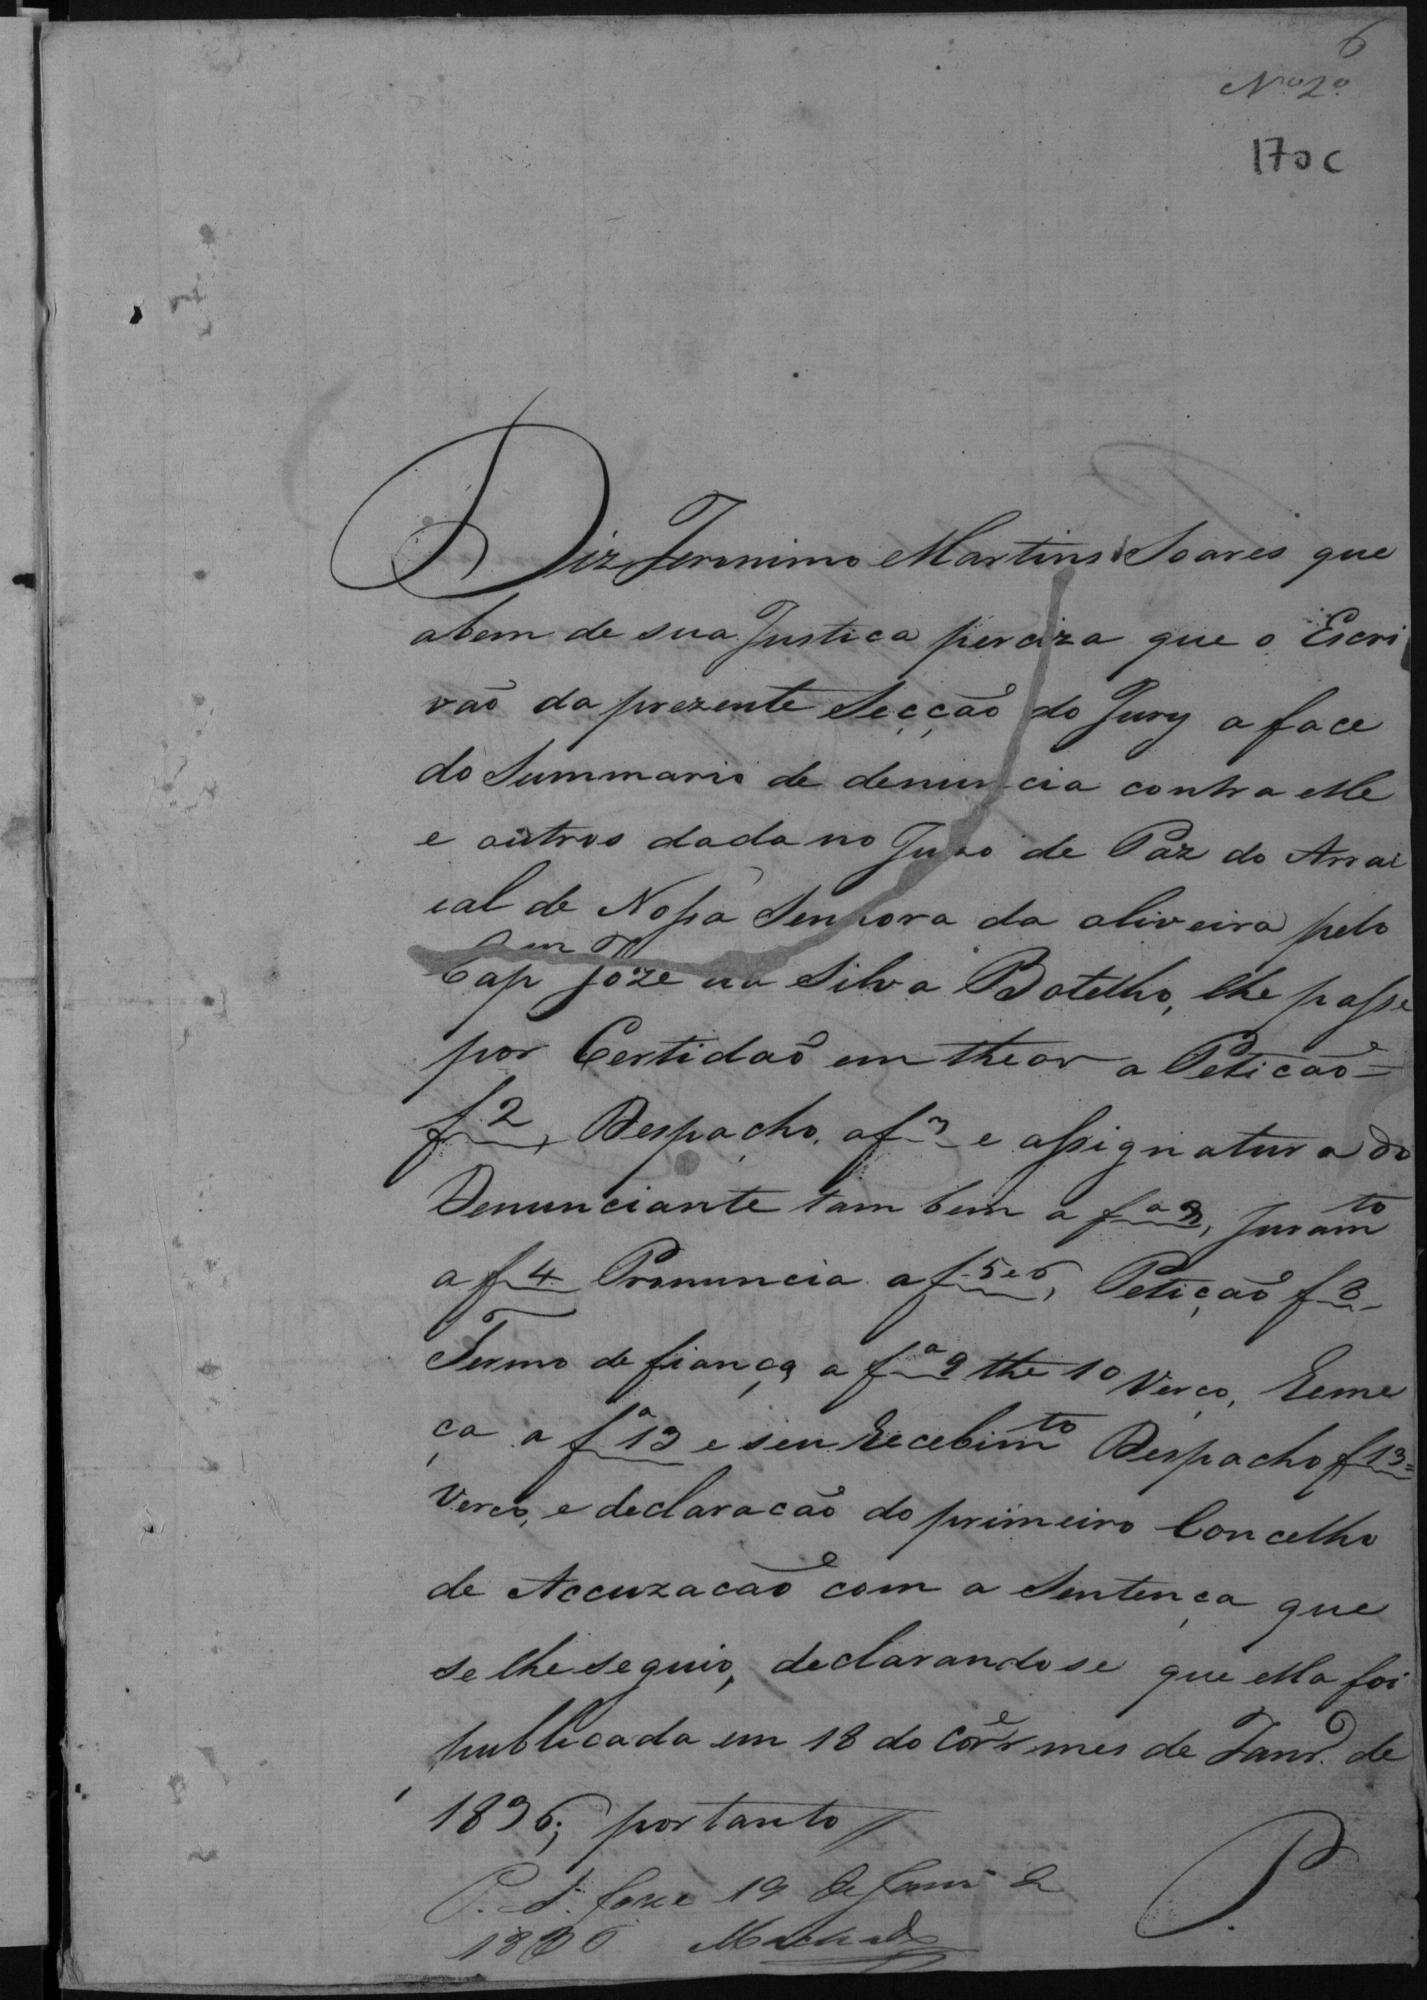 6
Nº 2º
170c
Diz Jeronimo Martins Soares que
abem de sua Justica perciza que o Escri
vaõ da prezente Secçaõ do Jury a face
do Summario de denuncia contra elle
e outros dada no Juizo de Paz do Arrai
ial de Nossa Senhora da oliveira pelo
Capᵐ Joze da Silva Botelho, lhe passe
por Certidaõ em theor a Peticaõ =
f 2, Despacho, a f 3 e assignatura do
Denunciante tam bem a fᵃ 3, Juramᵗᵒ
a f 4 Pronuncia a f 5 e 6, Petiçaõ f 8
Termo de fiança a fᵃ 9 the 10 Verço, Reme
ça a fᵃ 13 e seu Recebimᵗᵒ Despacho f 13 =
Verco, e declaracaõ do primeiro Concelho
de Accuzacaõ com a Sentença que
se lhe seguio, declarando se que ella foi
publicada em 18 do corrᵉ mes de Janrº de
1836; portanto
P. S. Joze 19 de Janrº de
1836 Machado
P.